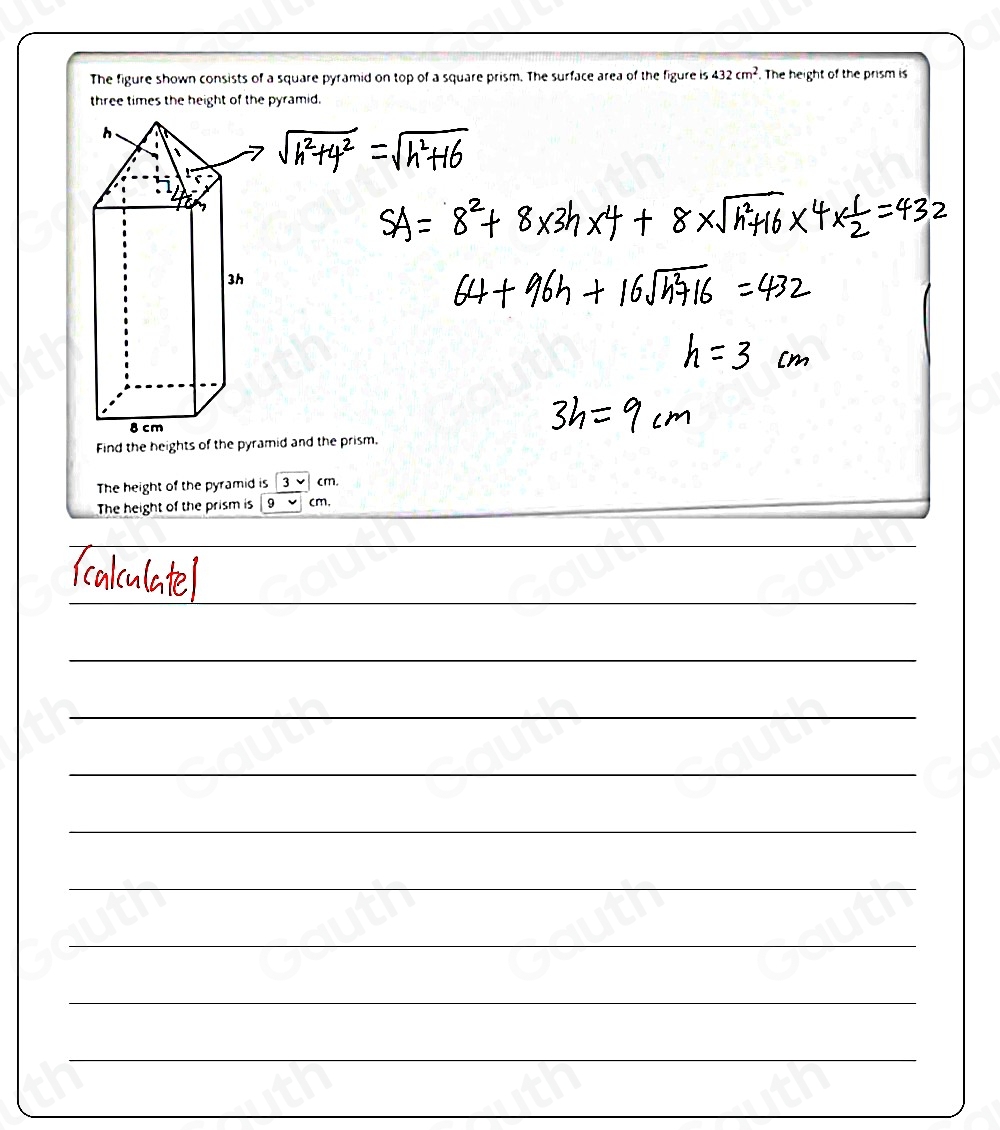 The figure shown consists of a square pyramid on top of a square prism. The surface area of the figure is 432 cm². The height of the prism is
three times the height of the pyramid.
h
√(h²+4²) = √(h²+16)
4cm
SA = 8² + 8×3h×4 + 8×√(h²+16)×4×1/2 = 432
3h
64 + 96h + 16√(h²+16) = 432
h = 3 cm
3h = 9 cm
8 cm
Find the heights of the pyramid and the prism.
The height of the pyramid is 3 cm.
The height of the prism is 9 cm.
[calculate]
Gauth